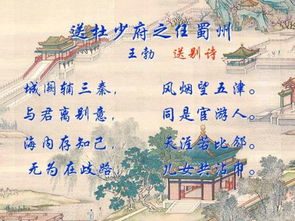 送杜少府之任蜀州
王勃 送别诗
城阙辅三秦， 风烟望五津。
与君离别意， 同是宦游人。
海内存知己， 天涯若比邻。
无为在歧路， 儿女共沾巾。